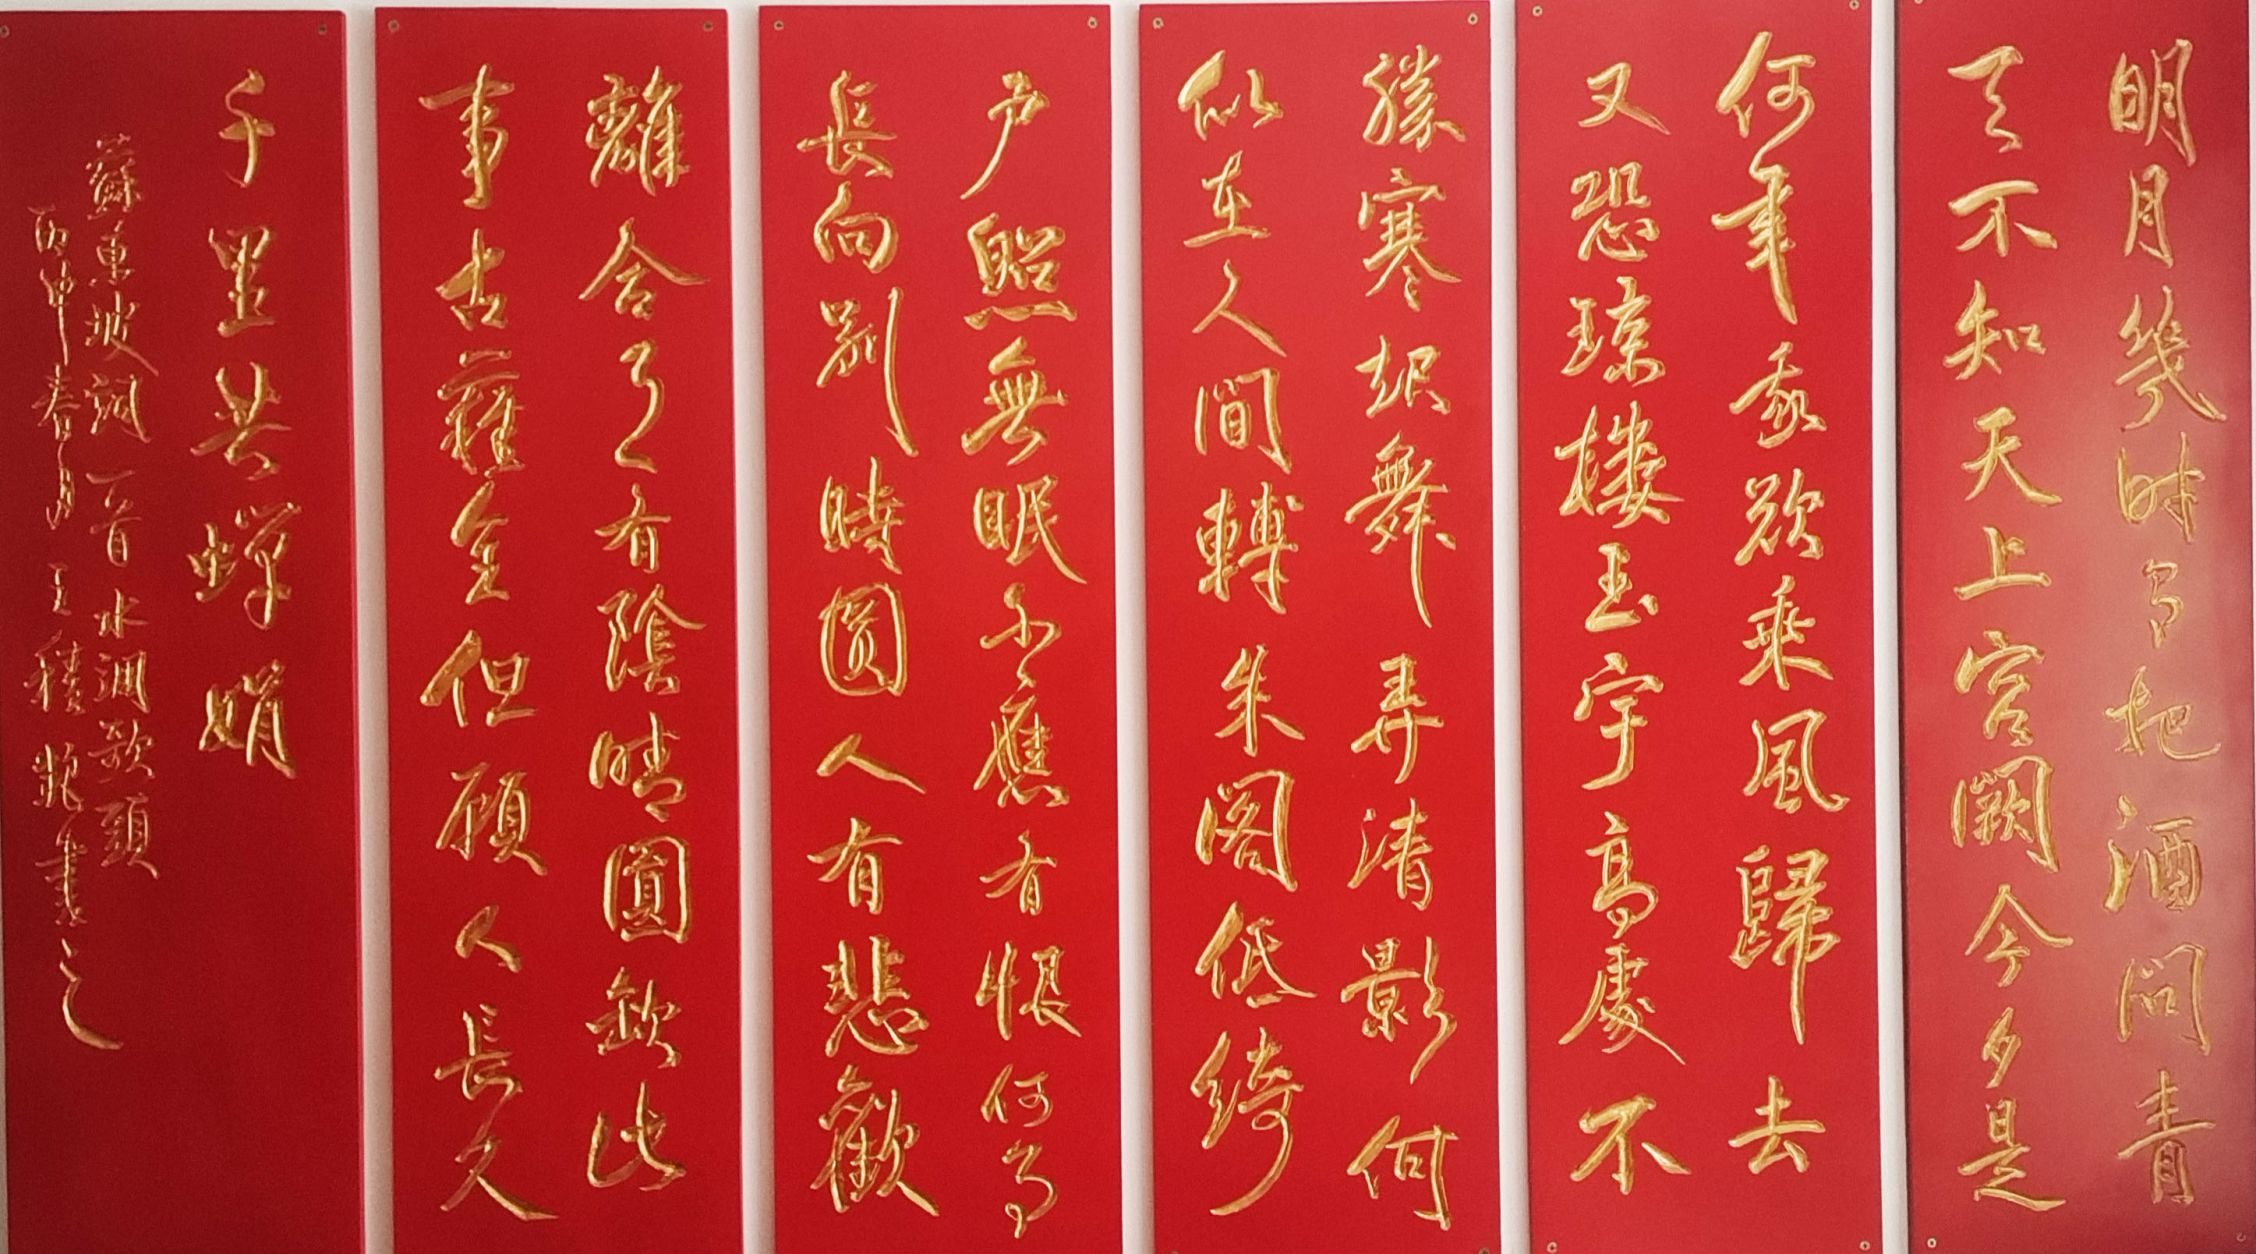 明月幾時有把酒問青
天不知天上宮闕今夕是
何年我欲乘風歸去
又恐琼樓玉宇高處不
勝寒起舞弄清影何
似在人間轉朱閣低綺
户照無眠不應有恨何事
長向別時圓人有悲歡
離合月有陰晴圓缺此
事古難全但願人長久
千里共嬋娟
蘇東坡詞一首水調歌頭
丙申春月王積書之